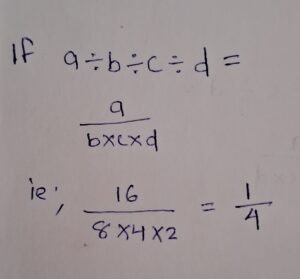 If a÷b÷c÷d =
a
b×c×d
ie; 16 / 8×4×2 = 1/4